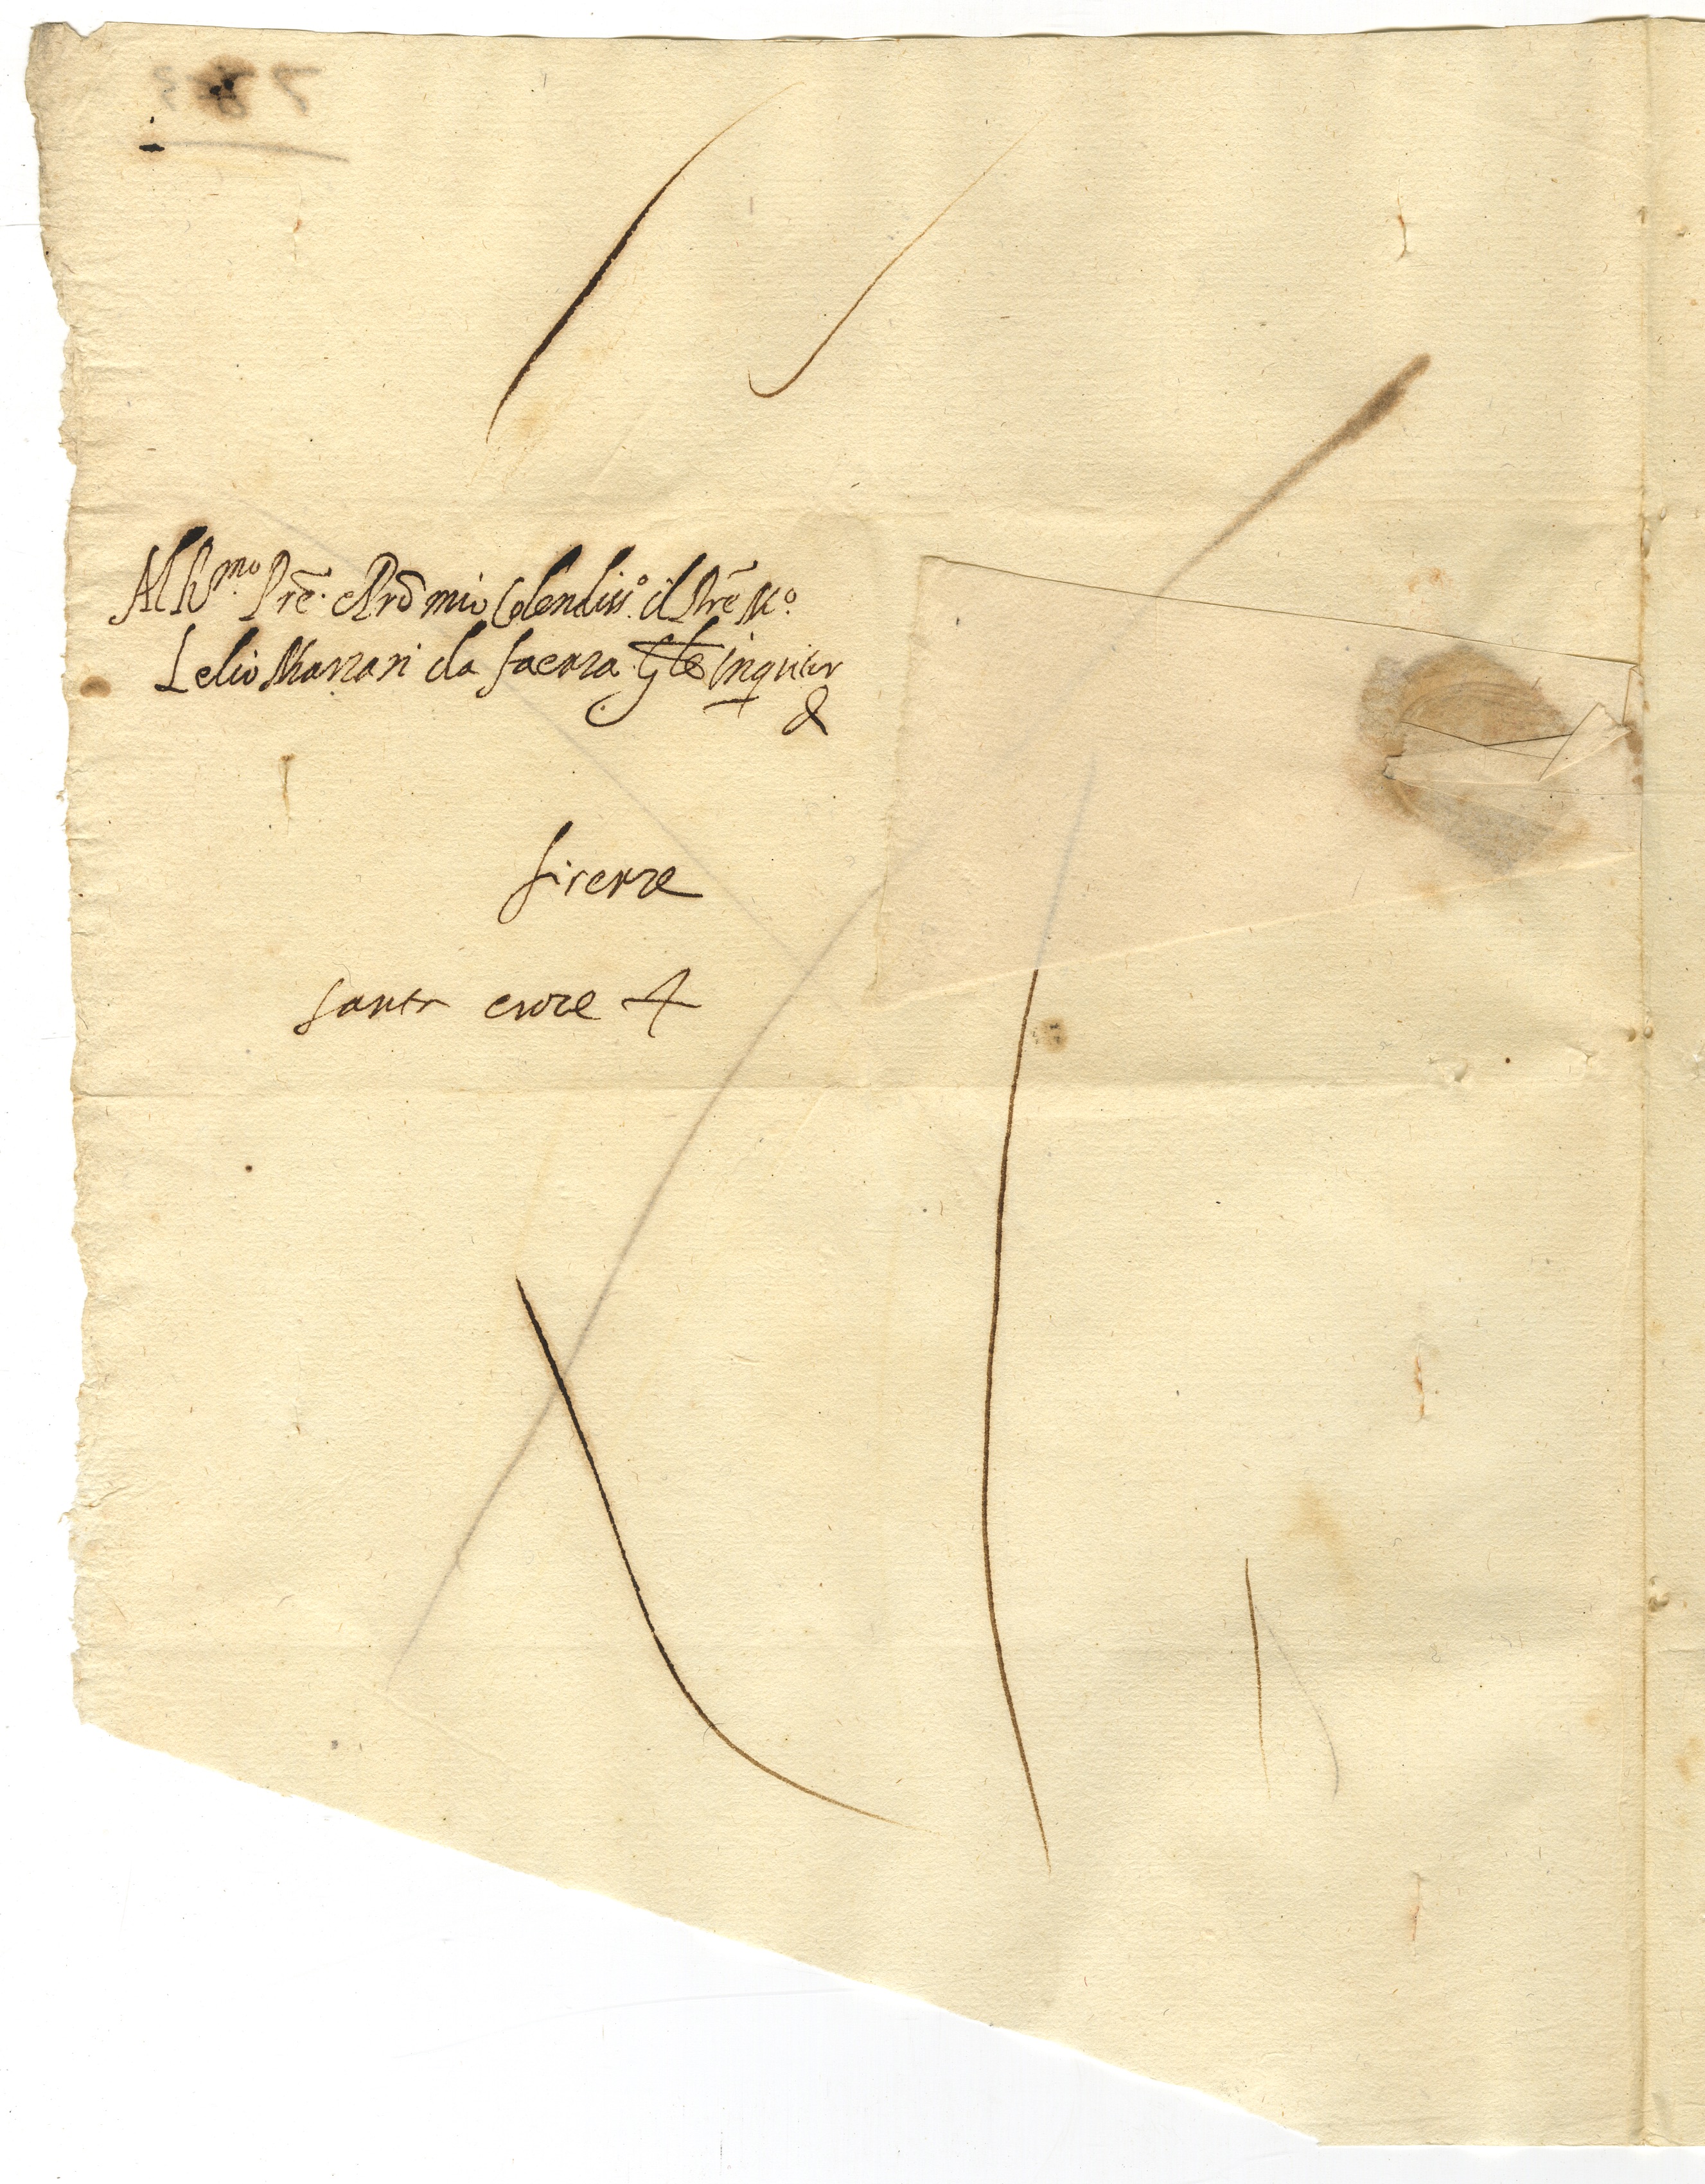 Al R.mo Pre. e Prō mio Colendiss.o il Prē M.o
Lelio Marzari da faenza Gle Inquitor
&
firenze
santa croce +